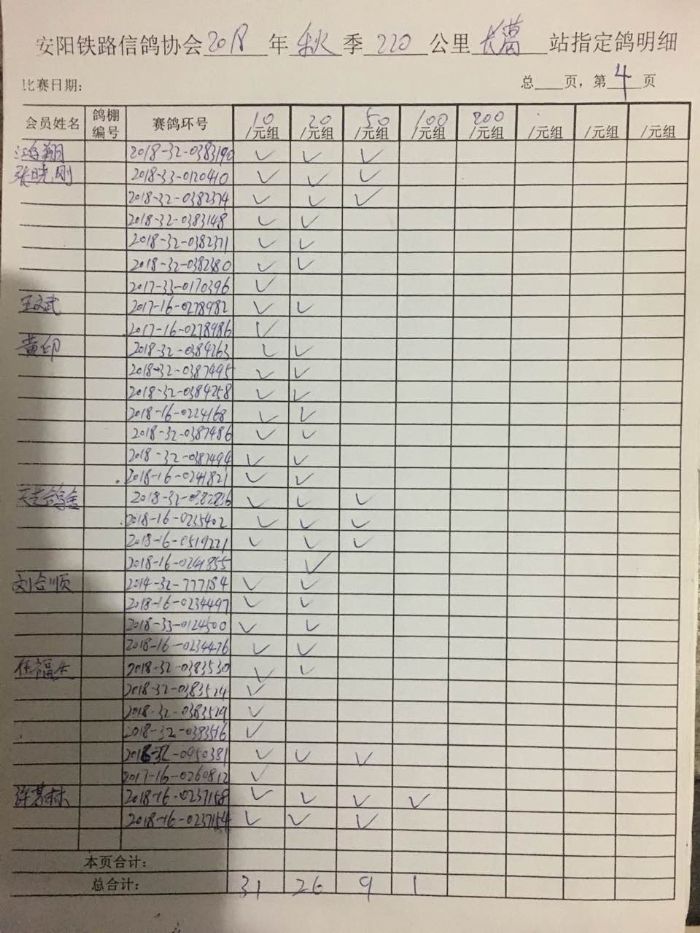 安阳铁路信鸽协会2018年秋季220公里长葛站指定鸽明细
比赛日期： 总 页，第4页
会员姓名 鸽棚编号 赛鸽环号 10/元组 20/元组 50/元组 100/元组 200/元组 /元组 /元组 /元组
鸿翔 2018-32-0383190 ✓ ✓ ✓
张晓刚 2018-33-0120410 ✓ ✓ ✓
2018-32-0382374 ✓ ✓ ✓
2018-32-0383148 ✓ ✓
2018-32-0382371 ✓ ✓
2018-32-0382380 ✓ ✓
2017-33-0170396 ✓
王文武 2017-16-0278982 ✓ ✓
2017-16-0278986 ✓
黄印 2018-32-0384263 ✓ ✓
2018-32-0387495 ✓ ✓
2018-32-0384258 ✓ ✓
2018-16-0224168 ✓ ✓
2018-32-0387486 ✓ ✓
2018-32-0387494 ✓ ✓
2018-16-0241821 ✓ ✓
2018-32-0382836 ✓ ✓ ✓
2018-16-0235402 ✓ ✓ ✓
2018-16-0519221 ✓ ✓ ✓
2018-16-0241855 ✓
刘合顺 2014-32-777184 ✓ ✓
2018-16-0234497 ✓ ✓
2018-33-0124500 ✓ ✓
2018-16-0234476 ✓ ✓
任福生 2018-32-0383530 ✓ ✓
2018-32-0383524 ✓
2018-32-0383529 ✓
2018-32-0383516 ✓
2018-32-0950381 ✓ ✓ ✓
2017-16-0260812 ✓
2018-16-0237158 ✓ ✓ ✓ ✓
2018-16-0237154 ✓ ✓ ✓
本页合计：
总合计： 31 26 9 1